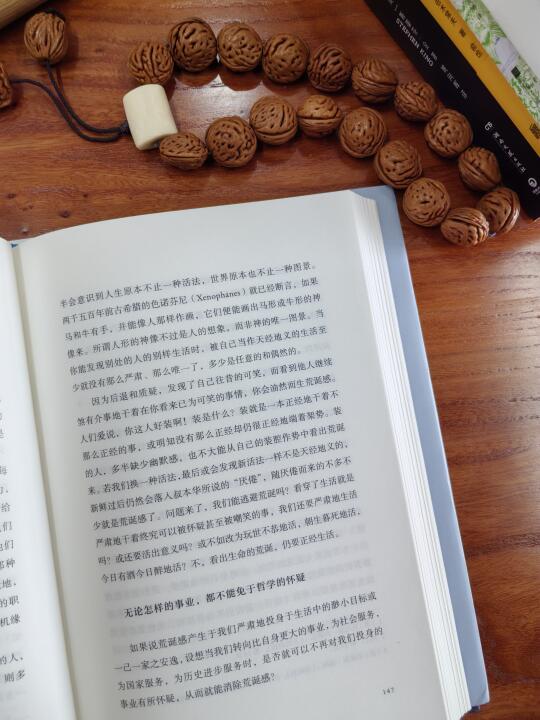 STEPHEN KING
半会意识到人生原本不止一种活法，世界原本也不止一种图景。
两千五百年前古希腊的色诺芬尼（Xenophanes）就已经断言，如果
马和牛有手，并能像人那样作画，它们便能画出马形或牛形的神
像来。所谓人形的神像不过是人的想象，而非神的唯一图景。当
你能发现别处的人的别样生活时，被自己当作天经地义的生活至
少就没有那么严肃、那么唯一了，多少是任意的和偶然的。
因为后退和质疑，发现了自己往昔的可笑，而看到他人继续
煞有介事地干着在你看来已为可笑的事情，你会油然而生荒诞感。
人们爱说，你这人好装啊！装是什么？装就是一本正经地干着不
那么正经的事，或明知没有那么正经却仍很正经地端着架势。装
的人，多半缺少幽默感，也不大能从自己的装腔作势中看出荒诞
来。若我们换一种活法，最后或会发现新活法一样不是天经地义的，
新鲜过后仍然会落入叔本华所说的“厌倦”，随厌倦而来的不多不
少就是荒诞感了。问题来了，我们能逃避荒诞吗？看穿了生活就是
严肃地干着终究可以被怀疑甚至被嘲笑的事，我们还要严肃地生活
吗？或还要活出意义吗？或不如改为玩世不恭地活，朝生暮死地活，
今日有酒今日醉地活？不，看出生命的荒诞，仍要正经生活。
无论怎样的事业，都不能免于哲学的怀疑
如果说荒诞感产生于我们严肃地投身于生活中的渺小目标或
一己一家之安逸，设想当我们转向比自身更大的事业，为社会服务，
为国家服务，为历史进步服务时，是否就可以不再对我们投身的
事业有所怀疑，从而就能消除荒诞感？
147